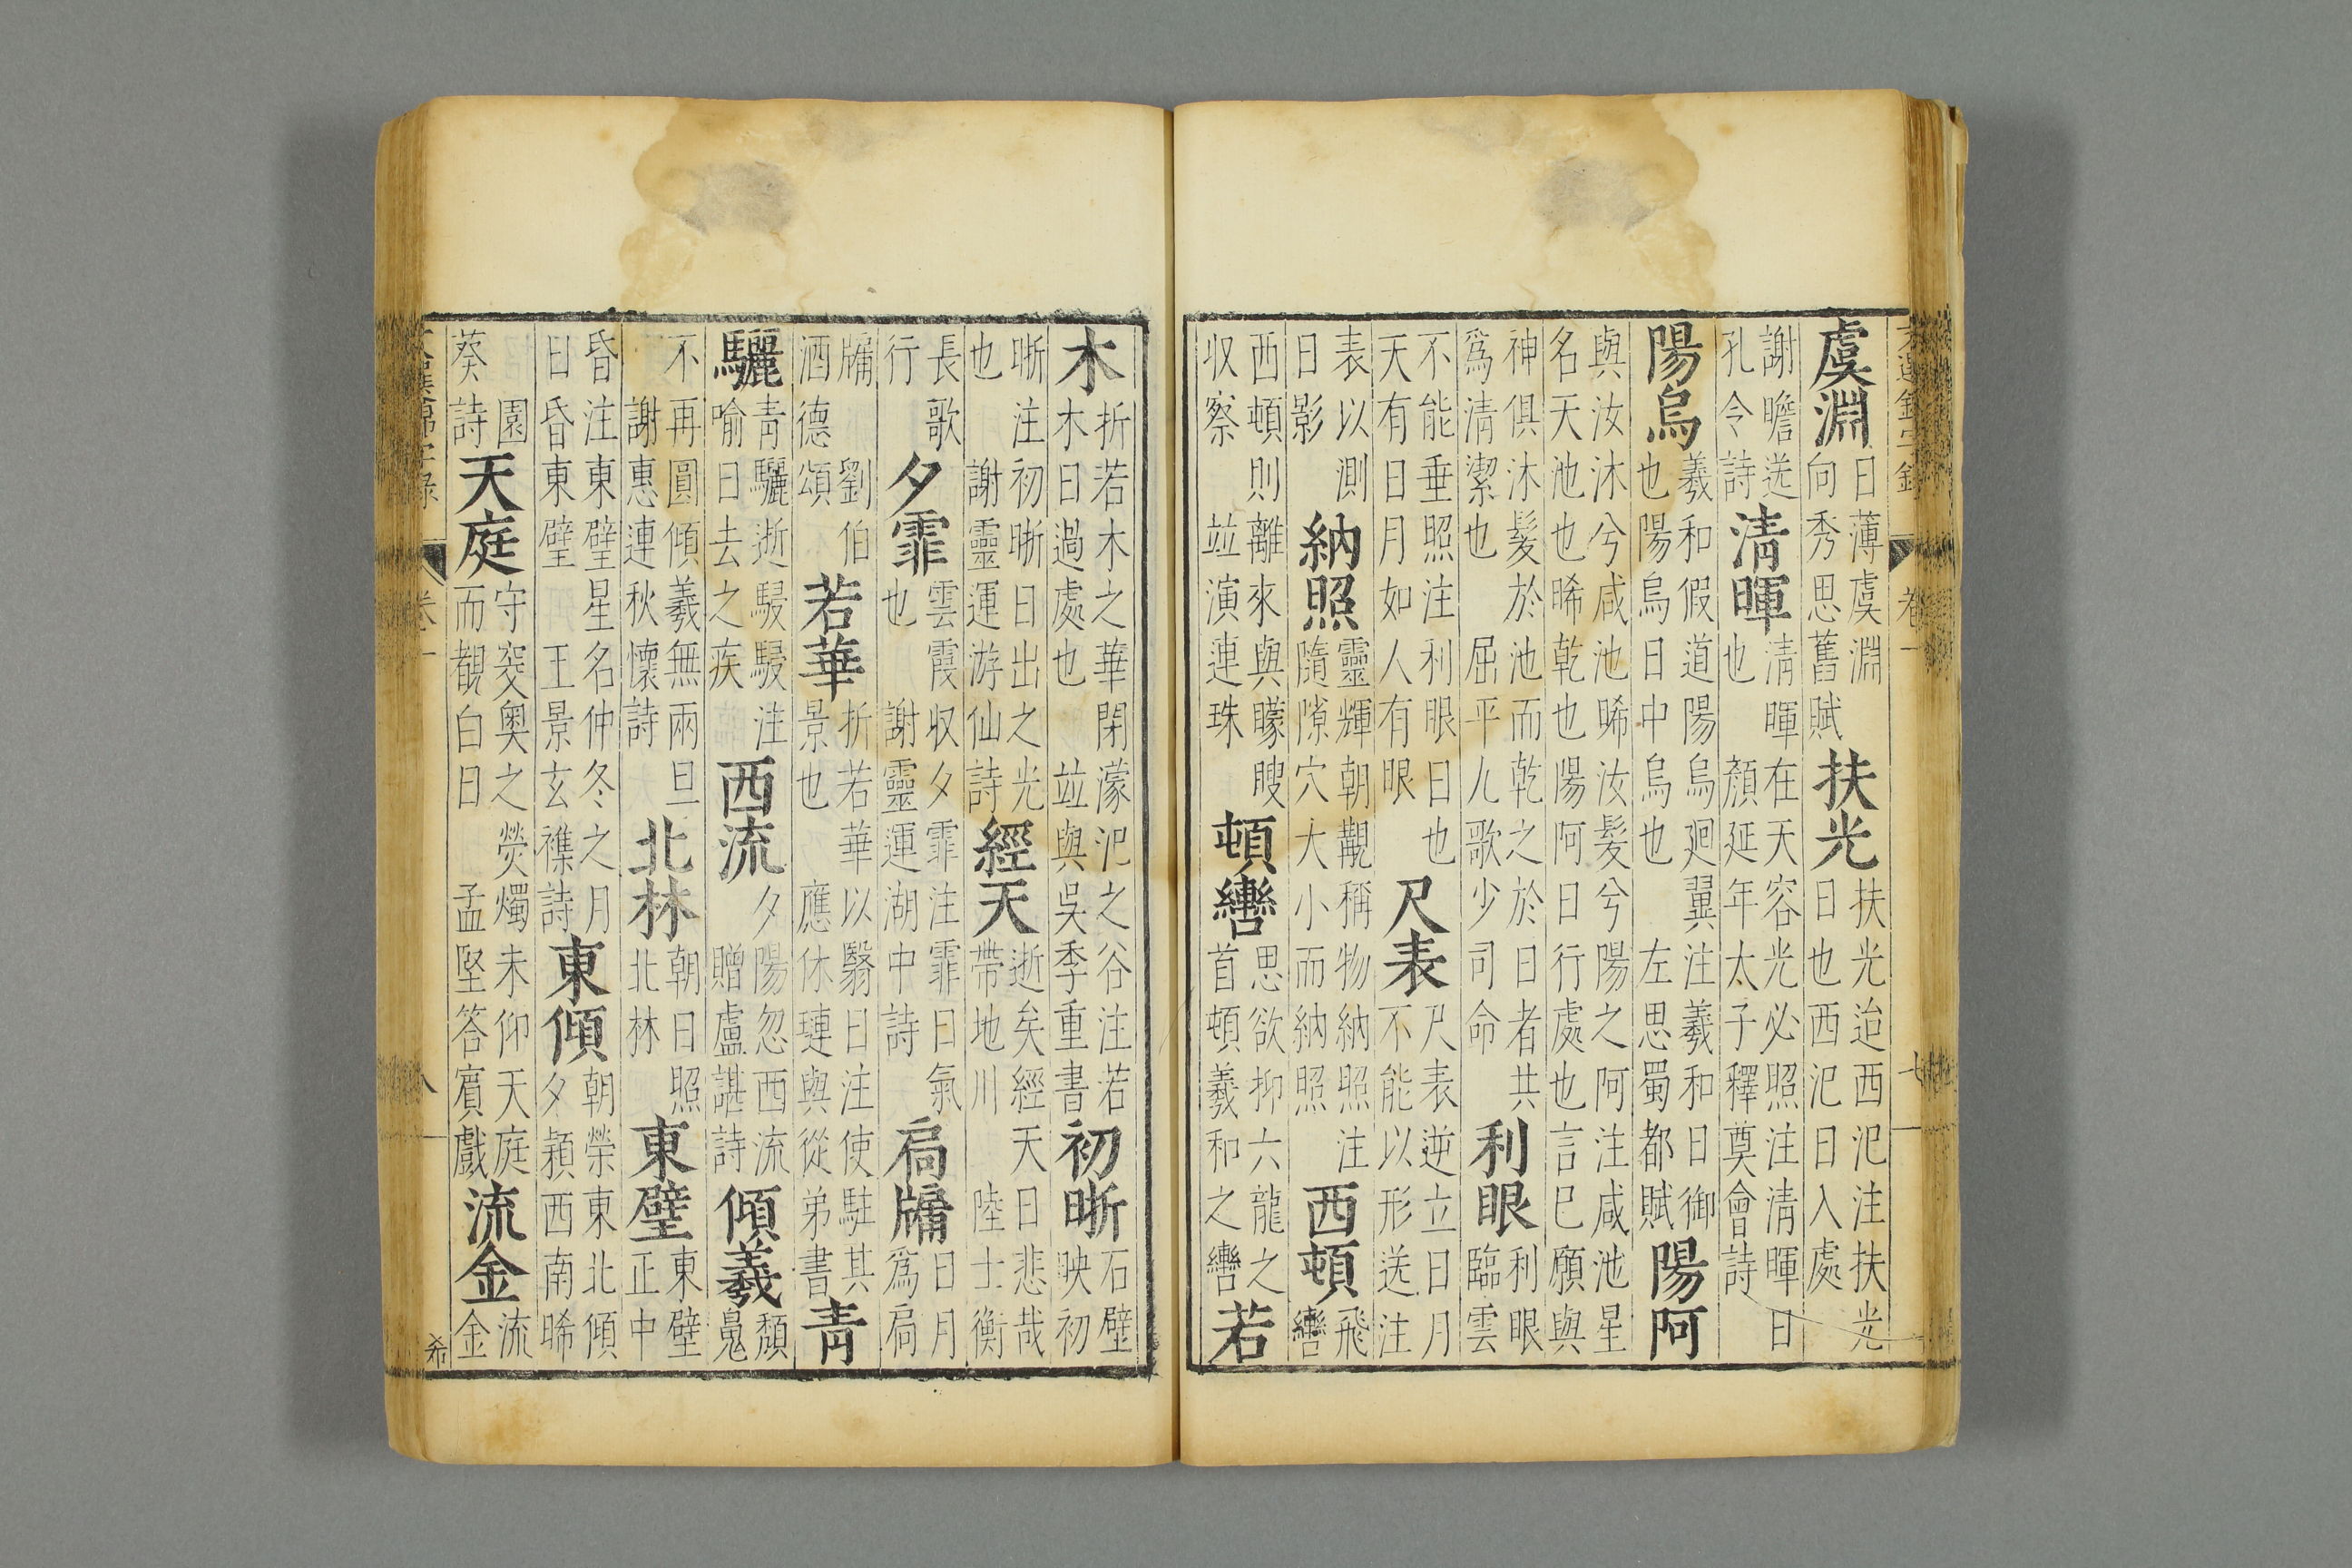 虞淵日薄虞淵向秀思舊賦扶光扶光迨西汜注扶光日也西汜日入處
謝瞻送孔令詩清暉清暉在天容光必照注清暉日也顏延年太子釋奠會詩
陽烏羲和假道陽烏廻翼注羲和日御也陽烏日中烏也左思蜀都賦陽阿
與汝沐兮咸池晞汝髮兮陽之阿注咸池星名天池也晞乾也陽阿日行處也言巳願與
神俱沐髮於池而乾之於日者共為清潔也屈平九歌少司命利眼利眼臨雲
不能垂照注利眼日也天有日月如人有眼尺表尺表逆立日月不能以形送注
表以測日影納照靈輝朝覯稱物納照注隨隙穴大小而納照西頓飛轡
西頓則離來與矇瞍収察並演連珠頓轡思欲抑六龍之首頓羲和之轡若
卷一 七
木折若木之華閉濛汜之谷注若木日過處也並與吳季重書初晣石壁映初
晣注初晣日出之光也謝靈運游仙詩經天逝矣經天日悲哉帶地川陸士衡
長歌行夕霏雲霞収夕霏注霏日氣也謝靈運湖中詩扃牖日月為扃
牖劉伯酒德頌若華折若華以翳日注使駐其景也應休璉與從弟書青
驪青驪逝駸駸注喻日去之疾西流夕陽忽西流贈盧諶詩傾羲頹鬼
不再圓傾羲無兩旦謝惠連秋懷詩北林朝日照北林東壁東壁正中
昏注東壁星名仲冬之月日昏東壁王景玄襍詩東傾朝榮東北傾夕穎西南晞
園葵詩天庭守突奧之熒燭未仰天庭而覩白日孟堅答賓戲流金流金
八